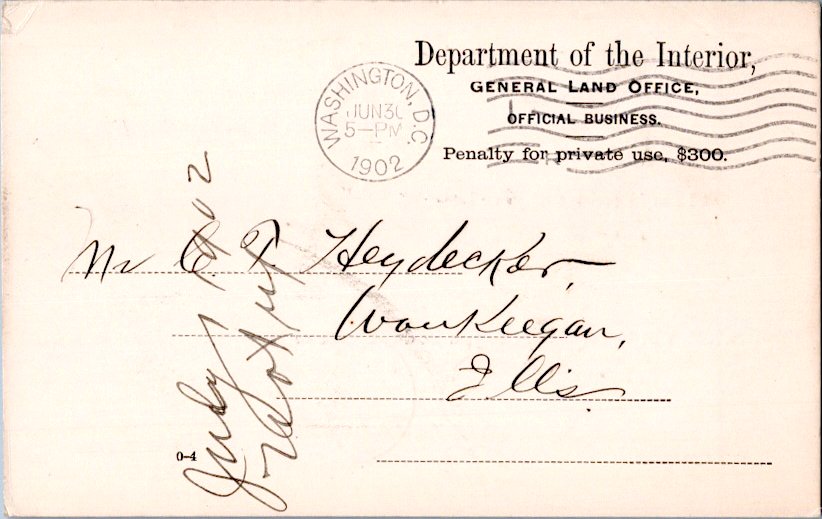 Department of the Interior,
GENERAL LAND OFFICE,
OFFICIAL BUSINESS.
Penalty for private use, $300.
WASHINGTON, D.C.
JUN 30
5-PM
1902
Mr C. T. Heydecker,
Waukeegan,
Ills.
July 1902
0-4